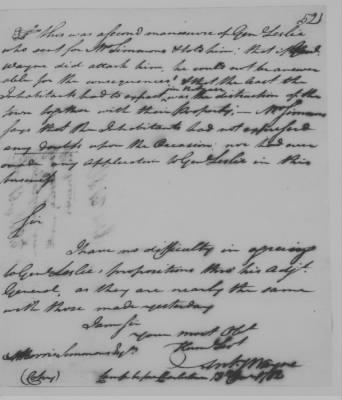 521
This was a second manoeuvre of Genl Leslie
who sent for Mr Simmons & told him; that if Genl
Wayne did attack him, he could not be answer
able for the consequences! & that the least the
Inhabitants had to expect, was the distruction of the
town together with their Property, — Mr Simmons
says that the Inhabitants had not expressed
any doubts upon the Occasion; nor had ever
made any application to Genl Leslie in this
business
Sir
I have no difficulty in agreeing
to Genl Leslie's propositions thro' his Adjt
General, as they are nearly the same
with those made yesterday
I am Sir
Your most Obt
Humb Sert
Anty Wayne
Morris Simmons Esqr
(Copy)
1782